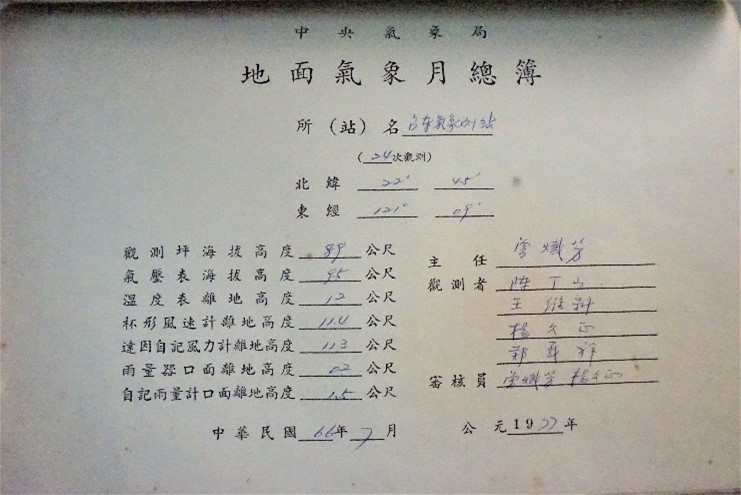 中央氣象局
地面氣象月總簿
所（站）名 台東氣象測站
（24次觀測）
北緯 22° 45'
東經 121° 09'
觀測坪海拔高度 8.9 公尺
氣壓表海拔高度 9.5 公尺
溫度表離地高度 1.2 公尺
杯形風速計離地高度 11.4 公尺
達因自記風力計離地高度 11.3 公尺
雨量器口面離地高度 0.2 公尺
自記雨量計口面離地高度 1.5 公尺
主任
觀測者 陳丁山
王維新
楊文正
審核員 楊文正
中華民國 66年 7月
公元 1977年